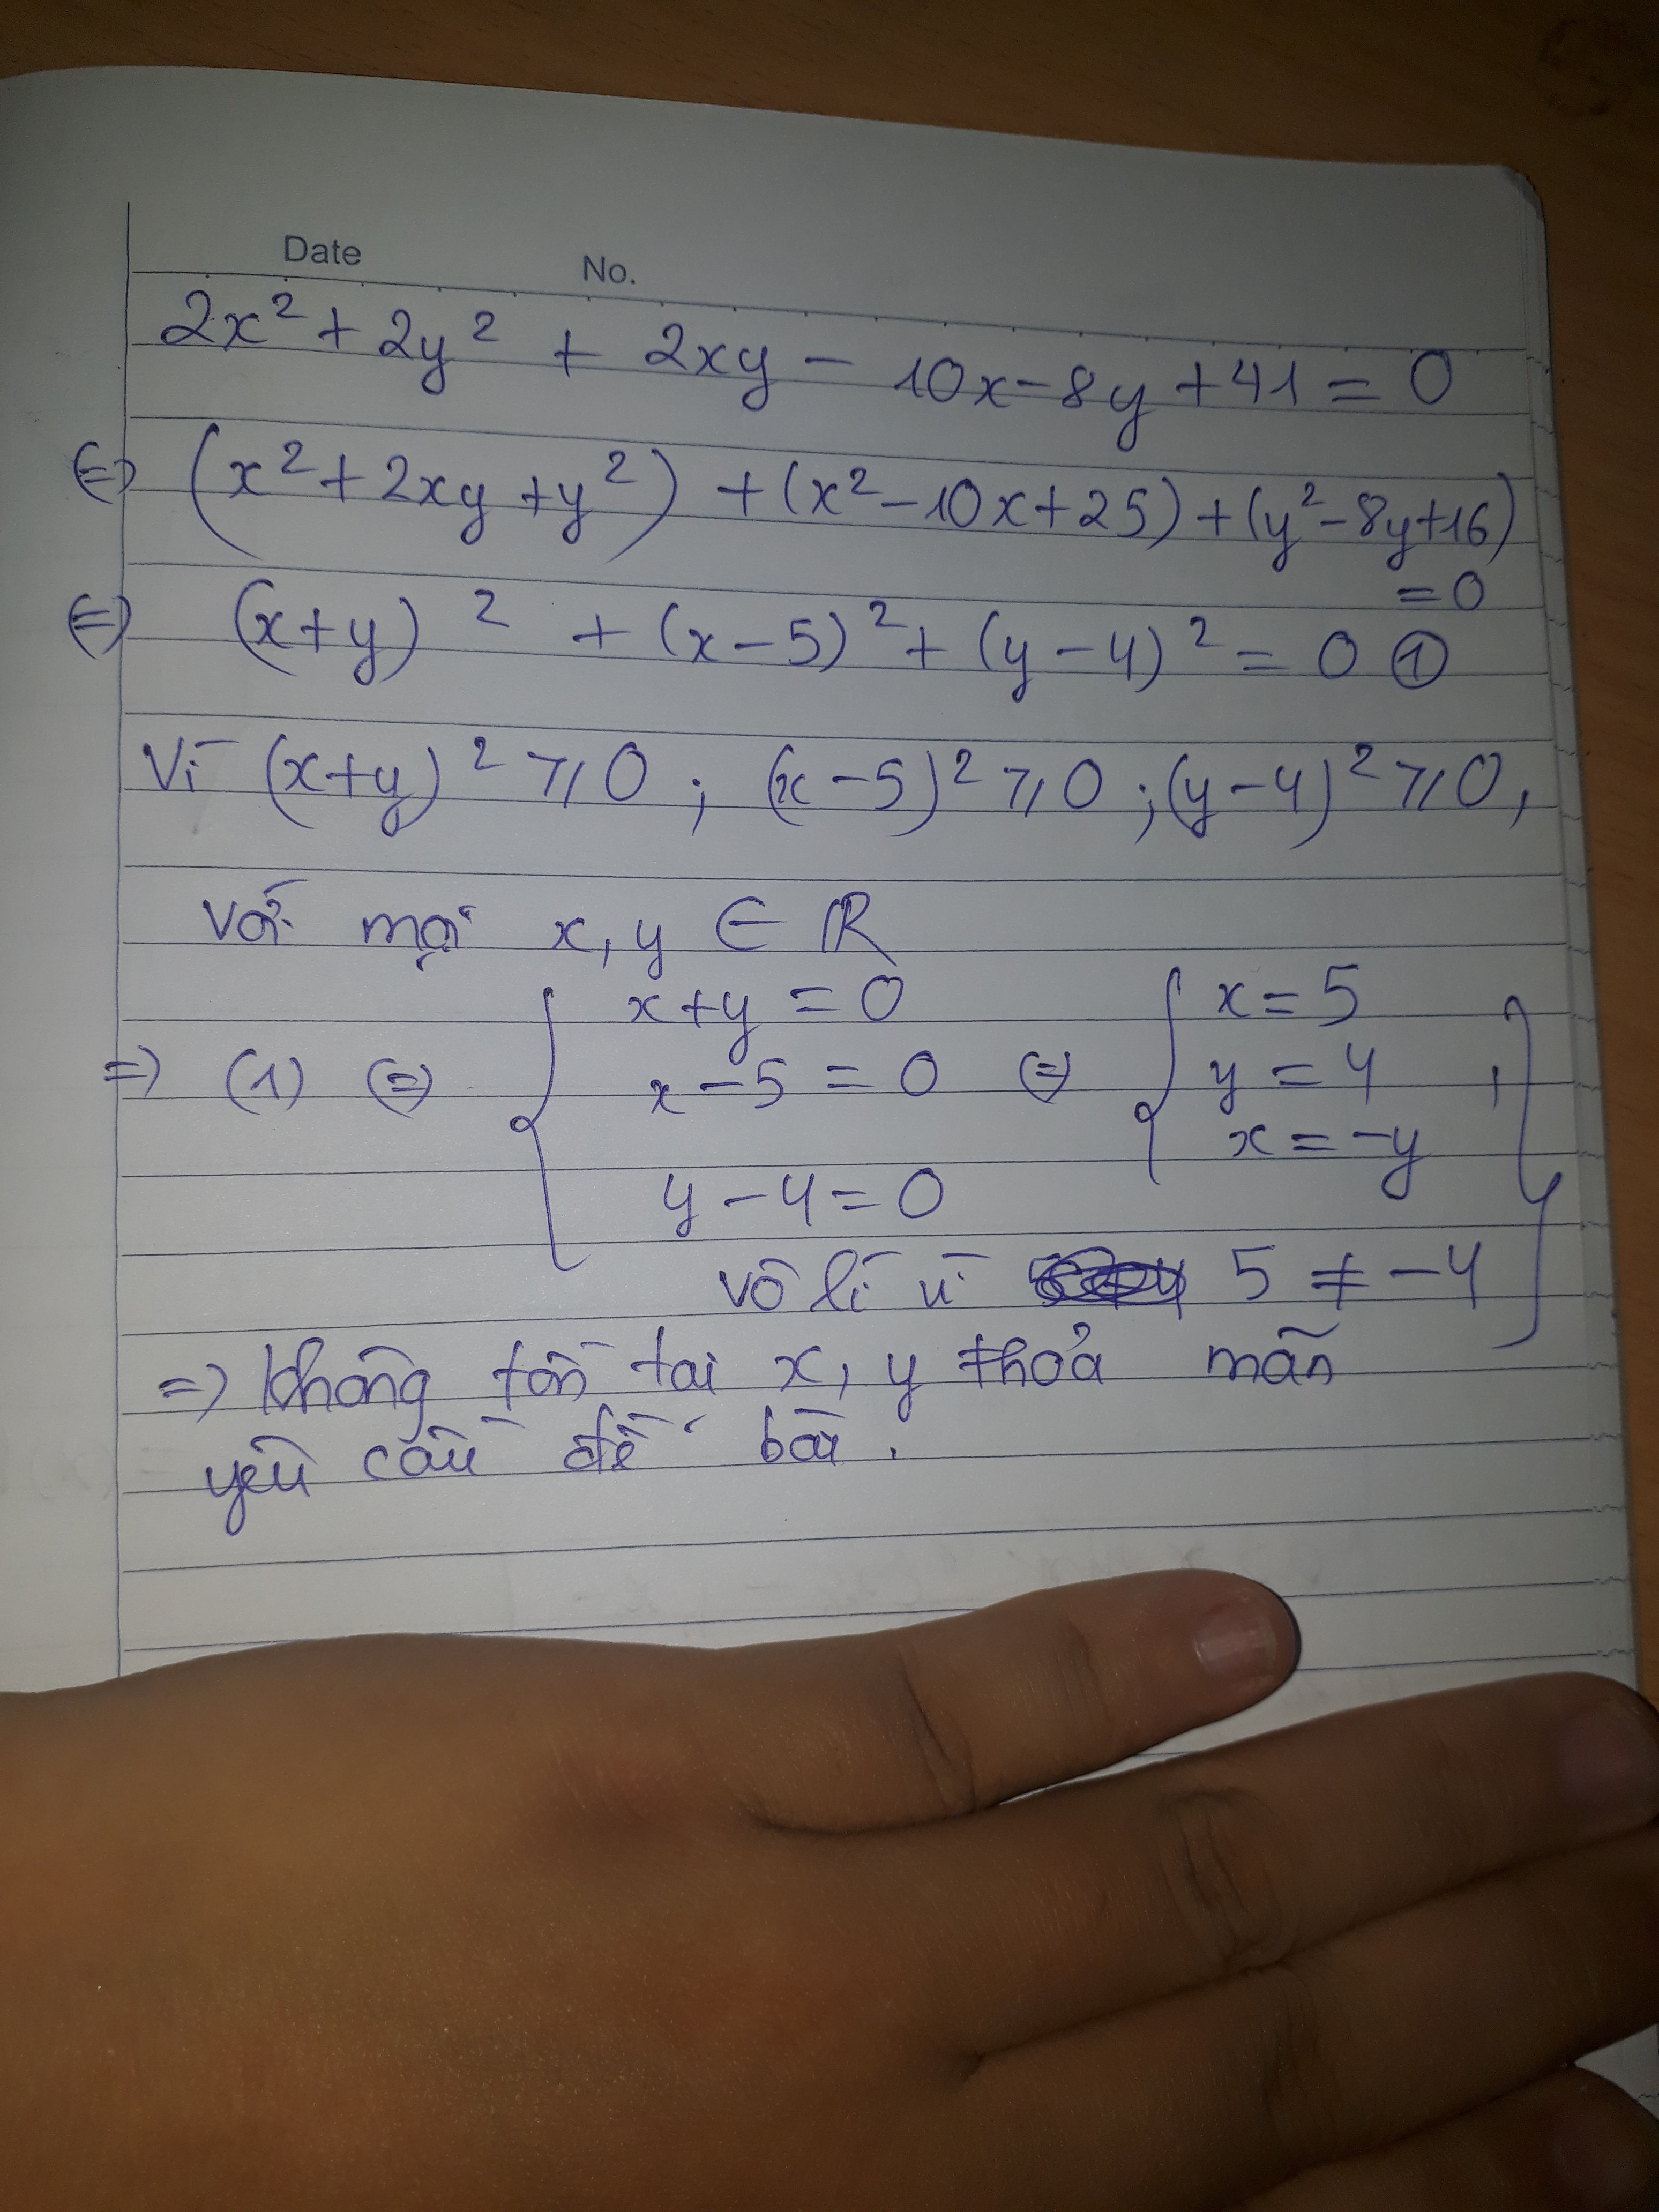 Date No.
2x² + 2y² + 2xy - 10x - 8y + 41 = 0
⇔ (x² + 2xy + y²) + (x² - 10x + 25) + (y² - 8y + 16)
= 0
⇔ (x+y)² + (x-5)² + (y-4)² = 0 ①
Vì (x+y)² ⩾ 0 ; (x-5)² ⩾ 0 ; (y-4)² ⩾ 0,
với mọi x, y ∈ ℝ
x+y = 0 x = 5
=> (1) ⇔ { x-5 = 0 ⇔ { y = 4 , }
x = -y
y - 4 = 0
vô lí vì 5 ≠ -4
=> Không tồn tại x, y thỏa mãn
yêu cầu đề bài.